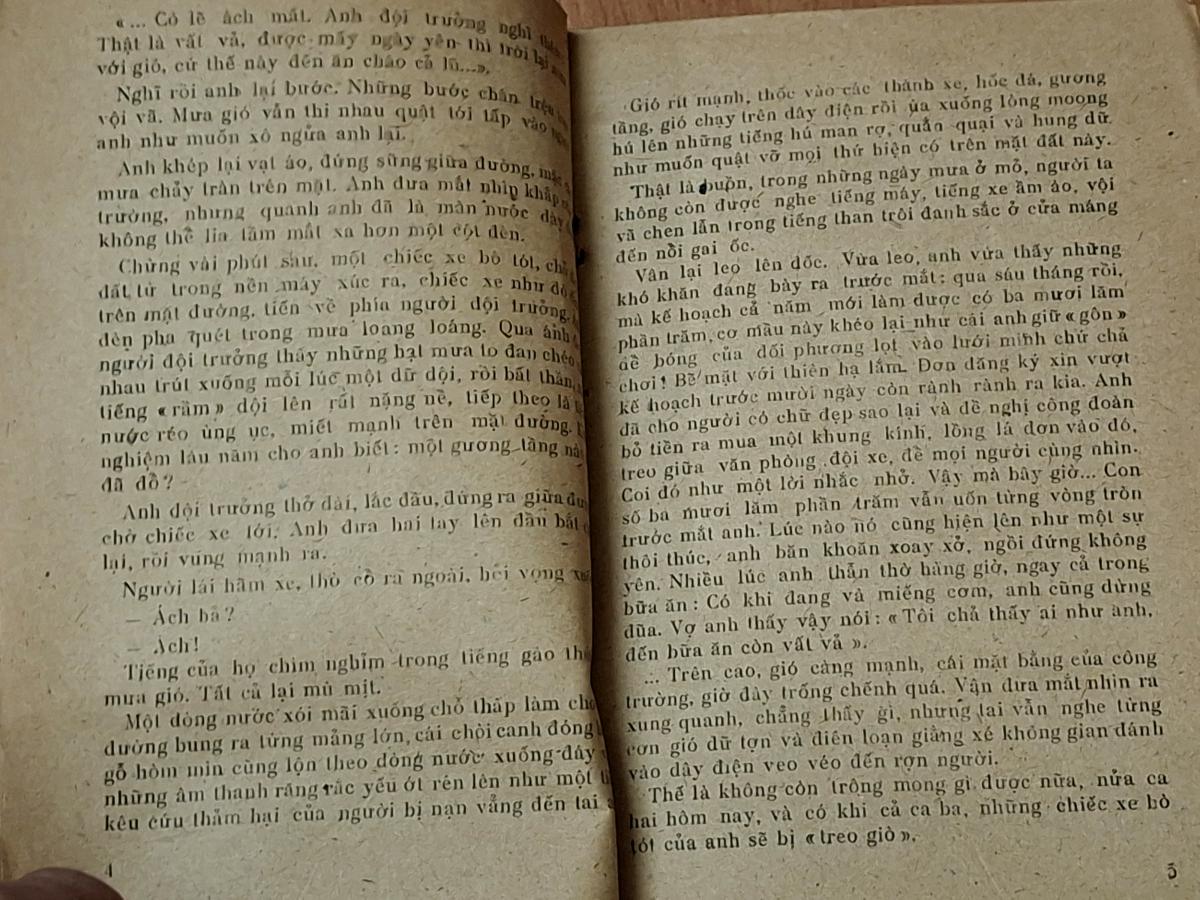 « ... Có lẽ ách mất. Anh đội trưởng nghĩ
Thật là vất vả, được mấy ngày yên thì trời lại
với gió, cứ thế này đến ăn cháo cả lũ...».
Nghĩ rồi anh lại bước. Những bước chân
vội vã. Mưa gió vẫn thi nhau quật tới tấp vào
anh như muốn xô ngửa anh lại.
Anh khép lại vạt áo, đứng sững giữa đường,
mưa chảy tràn trên mặt. Anh đưa mắt nhìn khắp
trường, nhưng quanh anh đã là màn nước dày
không thể lia tầm mắt xa hơn một cột đèn.
Chừng vài phút sau, một chiếc xe bò tót,
đất từ trong nền máy xúc ra, chiếc xe như
trên mặt đường, tiến về phía người đội trưởng,
đèn pha quét trong mưa loang loáng. Qua ánh
người đội trưởng thấy những hạt mưa to đan chéo
nhau trút xuống mỗi lúc một dữ dội, rồi bất thần,
tiếng « rầm » dội lên rất nặng nề, tiếp theo là
nước réo ùng ục, miết mạnh trên mặt đường.
nghiệm lâu năm cho anh biết : một gương tầng
đã đổ ?
Anh đội trưởng thở dài, lắc đầu, đứng ra giữa
chờ chiếc xe tới. Anh đưa hai tay lên đầu bắt
lại, rồi vung mạnh ra.
Người lái hãm xe, thò cổ ra ngoài, hỏi vọng
— Ách hả ?
— Ách !
Tiếng của họ chìm nghỉm trong tiếng gào
mưa gió. Tất cả lại mù mịt.
Một dòng nước xói mãi xuống chỗ thấp làm cho
đường bung ra từng mảng lớn, cái chòi canh đóng
gỗ hòm mìn cũng lộn theo dòng nước xuống đáy
những âm thanh răng rắc yếu ớt rên lên như một
kêu cứu thảm hại của người bị nạn vẳng đến tai
4
Gió rít mạnh, thốc vào các thành xe, hốc đá, gương
tầng, gió chạy trên dây điện rồi ùa xuống lòng moong
hú lên những tiếng hú man rợ, quằn quại và hung dữ
như muốn quật vỡ mọi thứ hiện có trên mặt đất này.
Thật là buồn, trong những ngày mưa ở mỏ, người ta
không còn được nghe tiếng máy, tiếng xe ầm ào, vội
vã chen lẫn trong tiếng than trôi đanh sắc ở cửa máng
đến nổi gai ốc.
Vân lại leo lên dốc. Vừa leo, anh vừa thấy những
khó khăn đang bày ra trước mắt : qua sáu tháng rồi,
mà kế hoạch cả năm mới làm được có ba mươi lăm
phần trăm, cơ mầu này khéo lại như cái anh giữ « gôn »
để bóng của đối phương lọt vào lưới mình chứ chả
chơi ! Bẽ mặt với thiên hạ lắm. Đơn đăng ký xin vượt
kế hoạch trước mười ngày còn rành rành ra kia. Anh
đã cho người có chữ đẹp sao lại và đề nghị công đoàn
bỏ tiền ra mua một khung kính, lồng lá đơn vào đó,
treo giữa văn phòng đội xe, để mọi người cùng nhìn.
Coi đó như một lời nhắc nhở. Vậy mà bây giờ... Con
số ba mươi lăm phần trăm vẫn uốn từng vòng tròn
trước mắt anh. Lúc nào nó cũng hiện lên như một sự
thôi thúc, anh băn khoăn xoay xở, ngồi đứng không
yên. Nhiều lúc anh thẫn thờ hàng giờ, ngay cả trong
bữa ăn : Có khi đang và miếng cơm, anh cũng dừng
đũa. Vợ anh thấy vậy nói : « Tôi chả thấy ai như anh,
đến bữa ăn còn vất vả ».
... Trên cao, gió càng mạnh, cái mặt bằng của công
trường, giờ đây trống chếnh quá. Vận đưa mắt nhìn ra
xung quanh, chẳng thấy gì, nhưng tai vẫn nghe từng
cơn gió dữ tợn và điên loạn giằng xé không gian đánh
vào dây điện veo véo đến rợn người.
Thế là không còn trông mong gì được nữa, nửa ca
hai hôm nay, và có khi cả ca ba, những chiếc xe bò
tót của anh sẽ bị « treo giò ».
5